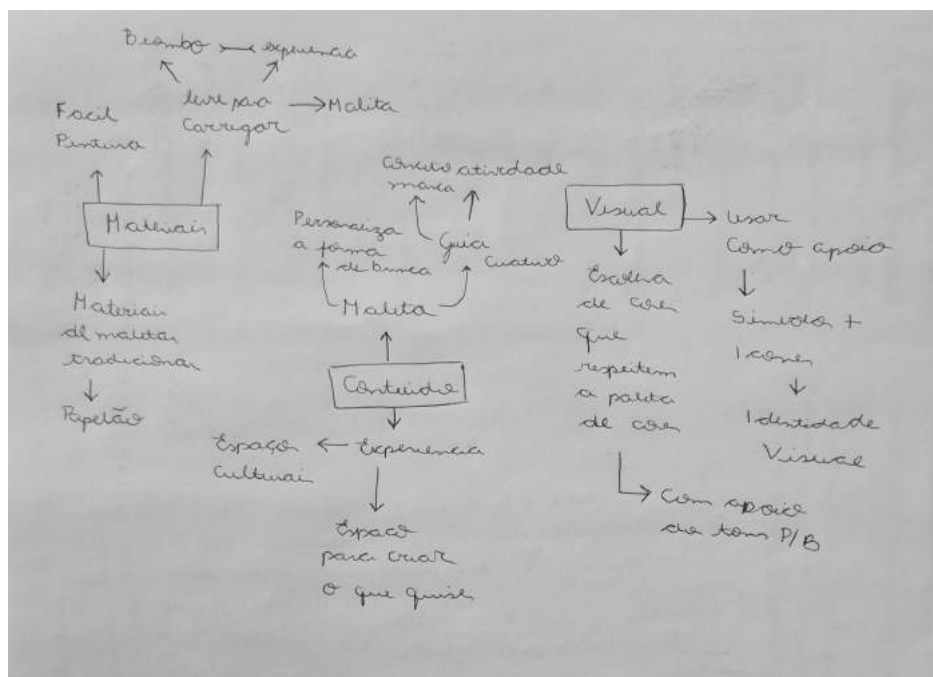 Biombo experiencia
Facil
Pintura
leve para
Carregar
Malita
Materiais
Materiais
de maletas
tradicionais
Papelão
Personaliza
a forma
de brinca
atividade
Guia
Malita
Conteúdo
Espaços
Culturais
Experiencia
Espaço
para criar
o que quiser
Visual
Usar
Como apoio
Simbolos +
Icones
Identidade
Visual
Escolha
de cores
que
respeitem
a paleta
de cores
Com apoio
de tons P/B